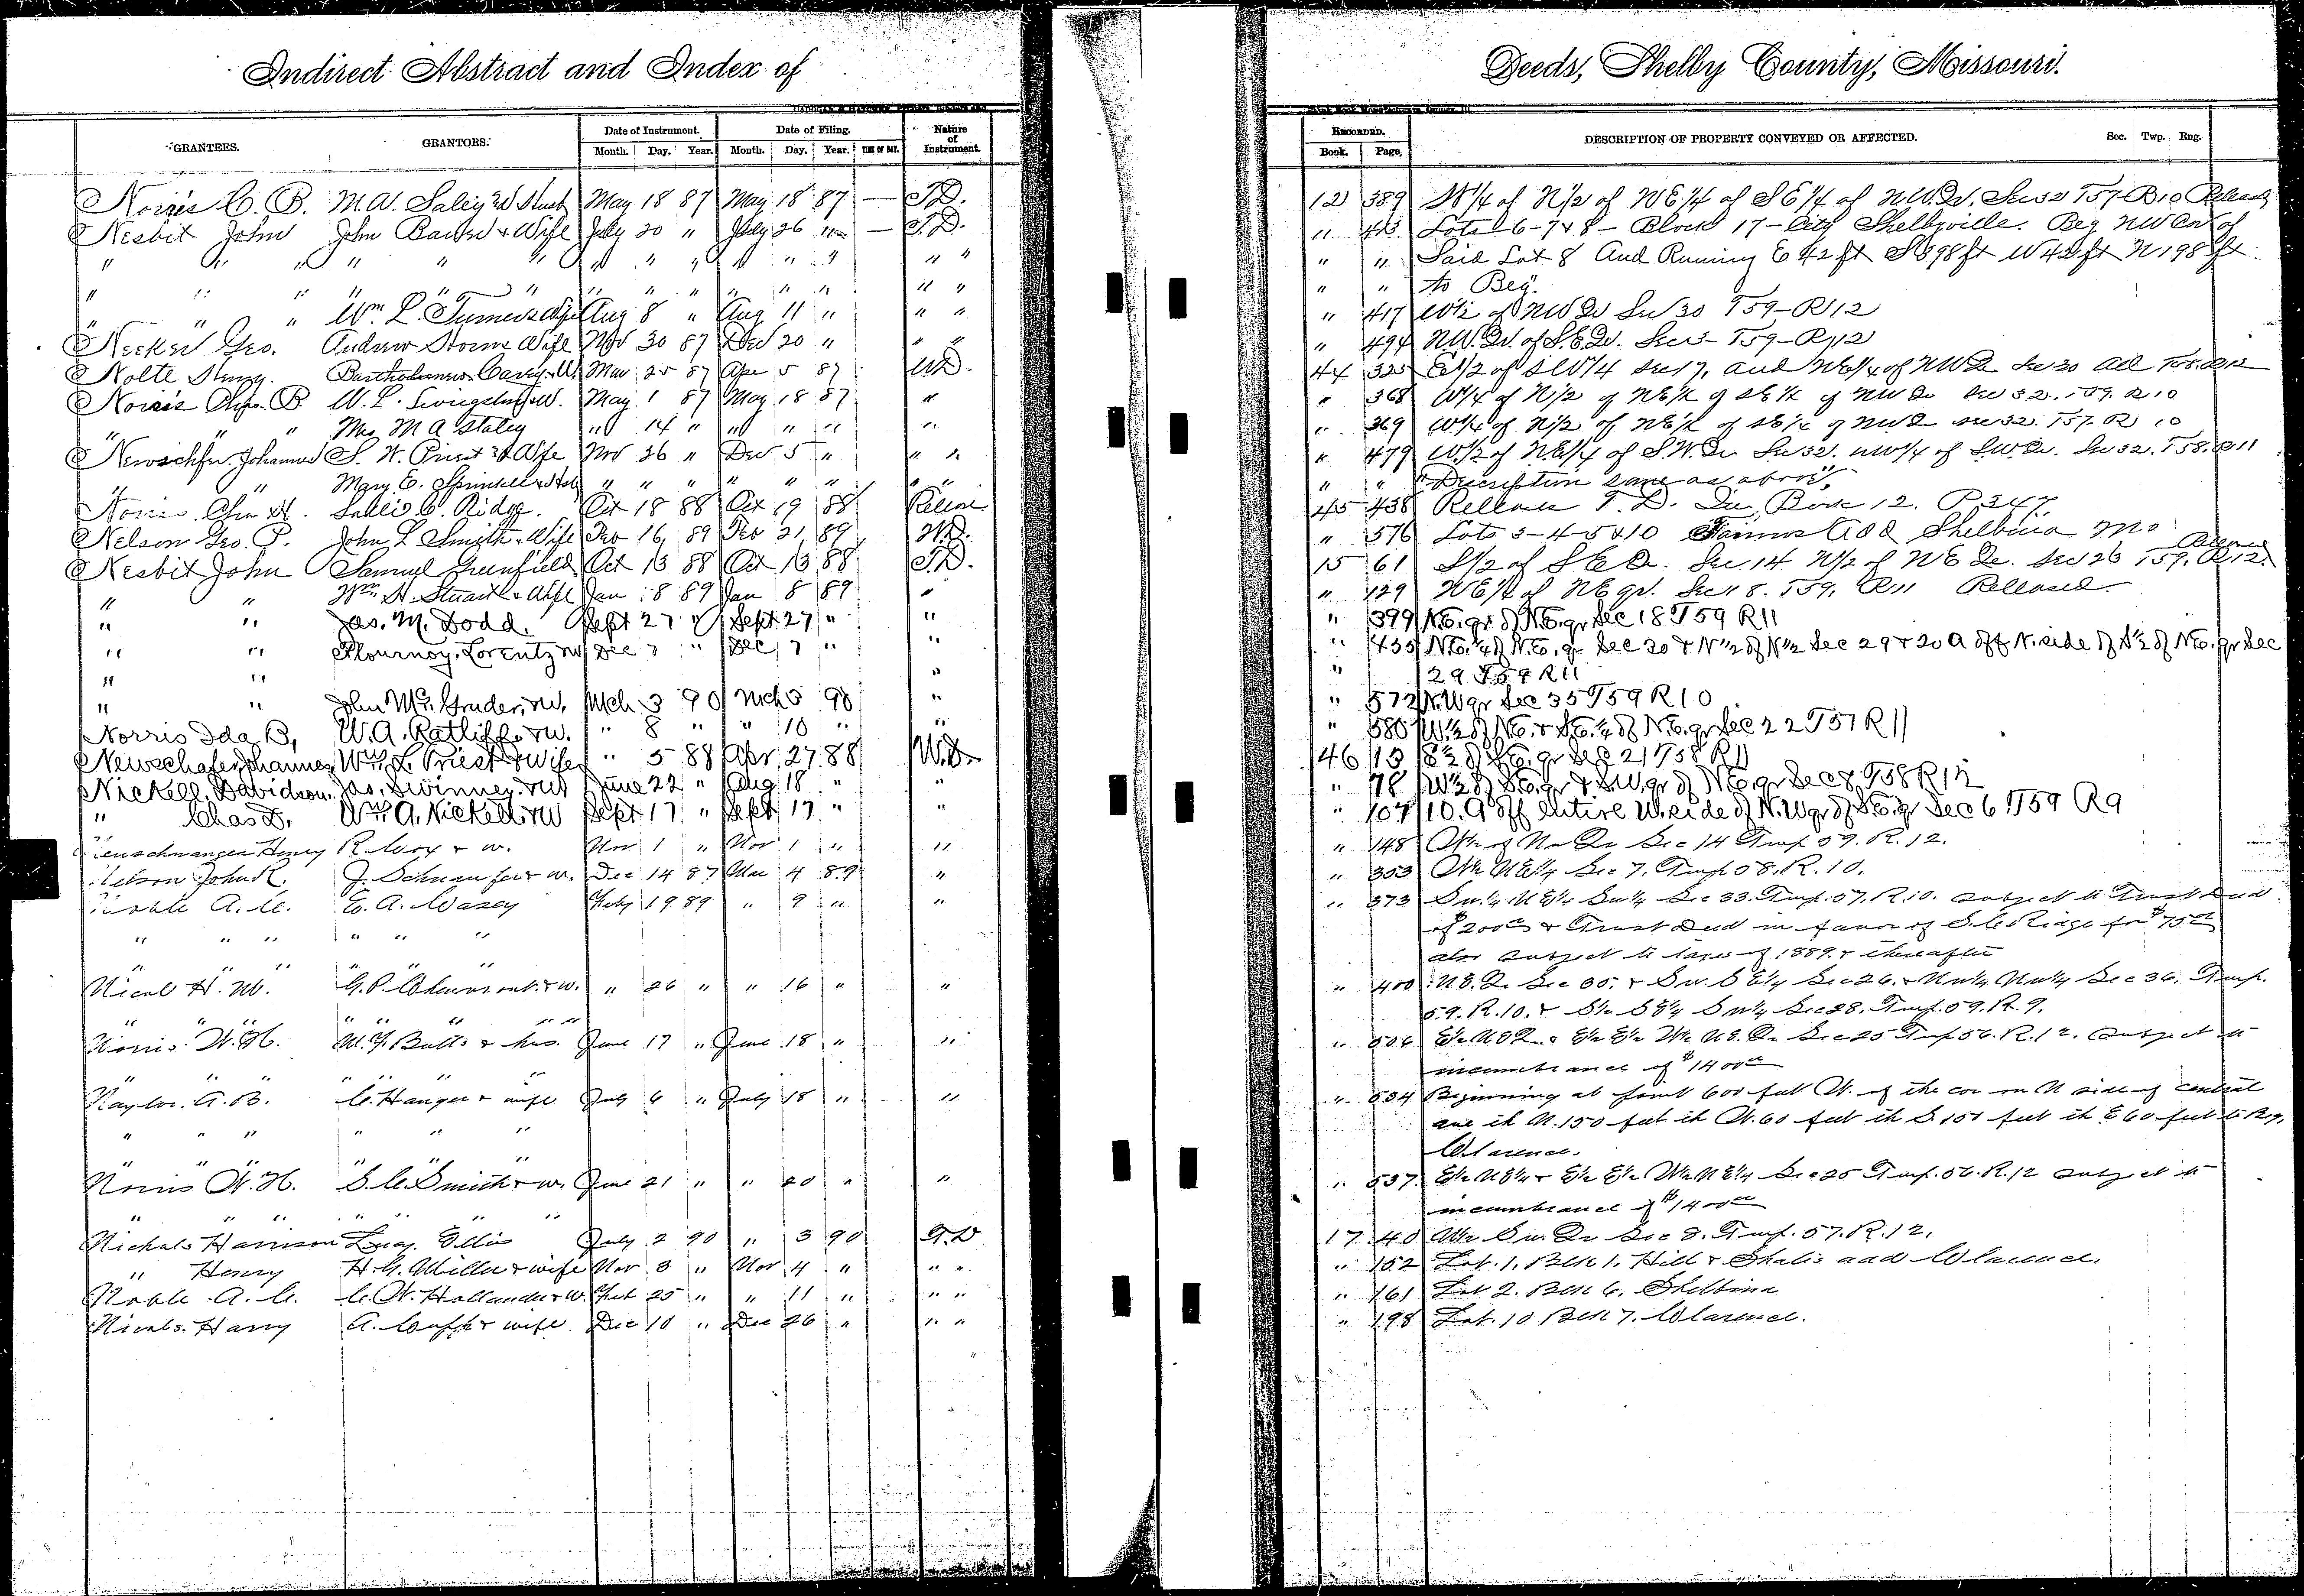 Indirect Abstract and Index of Deeds, Shelby County, Missouri.
GRANTEES. GRANTORS. Date of Instrument. Date of Filing. Nature of Instrument. RECORDED. DESCRIPTION OF PROPERTY CONVEYED OR AFFECTED. Sec. Twp. Rng.
Month. Day. Year. Month. Day. Year. Book. Page.
Norris C. B. M.A. May 18 87 May 18 87 — T.D. 12 389 W 1/4 of N 1/2 of NE 1/4 of SE 1/4 of N.W. Qr. Sec 32 T57 R10 Released
Nesbit John John & Wife July 20 " July 26 " — T.D. " Lots 6-7 & 8 - Block 17 - City Shelbyville. Beg NW Cor of
" " " " " " " " " " " " " " Said Lot 8 And Running E 42 ft S 198 ft W 42 ft N 198 ft
" " " " " " " " " " " " " " to Beg.
" " " Wm. L. Turner & Wife Aug 8 " Aug 11 " " " " 417 of NW Qr Sec 30 T59-R12
Geo. Andrew Storm & Wife Nov 30 87 Dec 20 " " " " 494 N.W. Qr. of S.E. Qr. Sec 3- T59-R12
Nolte Henry Bartholomew Mar 25 87 Apr 5 87 WD. 44 325 E 1/2 of 1/4 Sec 17, and NE 1/4 of NW Qr Sec 20 All T58 R12
Norris Chas. B. W. L. Livingston & W. May 1 87 May 18 87 " " 368 W 1/4 of N 1/2 of NE 1/4 of SE 1/4 of NW Qr Sec 32. R 10
" " " Mrs M A Staley " 14 " " " " " " 369 W 1/4 of N 1/2 of NE 1/4 of SE 1/4 of NW Qr Sec 32. T57. R 10
Johannes S. W. Priest & Wife Nov 26 " Dec 5 " " " " 479 W. 1/2 of N.E. 1/4 of S.W. Qr Sec 32. NW 1/4 of S.W. Qr. Sec 32. T58. R11
" " Mary E. " " " " " " " " " " Description same as above
Sallie C. Ridge. Oct 18 88 Oct 19 88 Release 45 438 Release T. D. In Book 12. P. 347.
Nelson Geo. P. John L Smith & Wife Feb 16, 89 Feb 21 89 W.D. " 576 Lots 3-4-5 & 10 Add Shelbina Mo
Nesbit John Samuel Greenfield Oct 13 88 Oct 13 88 T.D. 15 61 S 1/2 of S E Qr. Sec 14 N 1/2 of NE Qr. Sec 23 T59. R12. Released
" " Wm. H. Stuart & Wife Jan 8 89 Jan 8 89 " " 129 NE 1/4 of NE qr. Sec 18. T59. R11 Released.
" " Jas. M. Dodd. Sept 27 " Sept. 27 " " " 399 N.E. qr of N.E. qr Sec 18 T59 R11
" " Flournoy. Lorentz & W Dec 7 " Dec 7 " " " 435 N.E. 1/4 of N.E. qr Sec 30 & N 1/2 of N 1/2 Sec 29 & 20 A off N. side of S 1/2 of N.E. qr Sec
" " " " 29 T59 R11
" " John Mc. Gruder, & W. Mch 3 90 Mch 3 90 " " 572 N.W qr Sec 35 T59 R10
Norris Ida B, W. A. Ratliff & W. " 8 " " 10 " " " 580 W 1/2 of N.E. & S.E. 1/4 of N.E. qr Sec 22 T57 R11
Neuschafer Johannes Wm. L. Priest & wife " 5 88 Apr. 27 88 W.D. 46 13 of S.E. qr Sec 21 T58 R11
Nickell, Davidson. Jas. Swinney & W June 22 " Aug 18 " " " 78 W 1/2 of S.E. qr & S.W. qr of N.E. qr Sec 8 T58 R12
" Chas D. Wm. A. Nickell & W Sept 17 " Sept 17 " " " 107 10. A off entire W. side of N.W qr of S.E. qr Sec 6 T59 R9
Henry R. & w. Nov 1 " Nov 1 " " " 148 of Ne Qr Sec 14 Twp 59. R. 12.
Nelson John R. J. & w. Dec 14 87 Mar 4 89 " " 353 NE 1/4 Sec 7. Twp 58. R. 10.
Noble A. C. E. A. Casey Feby 19 89 " 9 " " " 373 Sw. 1/4 NE 1/4 Sw 1/4 Sec 33. Twp. 57. R. 10. subject to Trust Deed
" " " " " " of 200 & Trust Deed in favor of S. C. Ridge for $75
" " " " " " also subject to taxes of 1889. & thereafter
Nicol H. M. G. P. & w. " 26 " " 16 " " " 400 N.E. Qr Sec 35. & Sw. SE 1/4 Sec 26. & Nw 1/4 Nw 1/4 Sec 36. Twp.
" " " " " " 59. R. 10. & S 1/2 SE 1/4 Sw 1/4 Sec 28. Twp. 59. R. 9.
Norris. W. H. M. F. Butts & hus. June 17 " June 18 " " " 506 E 1/2 NE Qr. & E 1/2 E 1/2 W 1/2 N.E. Qr Sec 25 Twp 56. R. 12. subject to
" " " " " " incumbrance of $1400
Naylor. A. B. C. Hanger & wife July 6 " July 18 " " " 534 Beginning at point 600 feet W. of the cor on N side of central
" " " " " " ave th N. 150 feet th W. 60 feet th S. 150 feet th E 60 feet to Beg,
" " " " " " Clarence.
Norris W. H. S. C. Smith & w. June 21 " " 20 " " " 537 E 1/2 NE 1/4 & E 1/2 E 1/2 W 1/2 NE 1/4 Sec 25 Twp. 56. R. 12 subject to
" " " " " " incumbrance of $1400
Nichols Harrison Ellis July 2 90 " 3 90 T.D 17 40 W 1/2 Sw. Qr Sec 8. Twp. 57. R. 12.
" Henry H. G. Miller & wife Nov 3 " Nov 4 " " " " 152 Lot. 1. Blk 1. Hill & add Clarence.
Noble A. C. C. W. Hollander & w. Feb 25 " " 11 " " " " 161 Lot 2. Blk 6. Shelbina
Nicols. Harry A. Cuff & wife Dec 10 " Dec 26 " " " " 198 Lot. 10 Blk 7. Clarence.